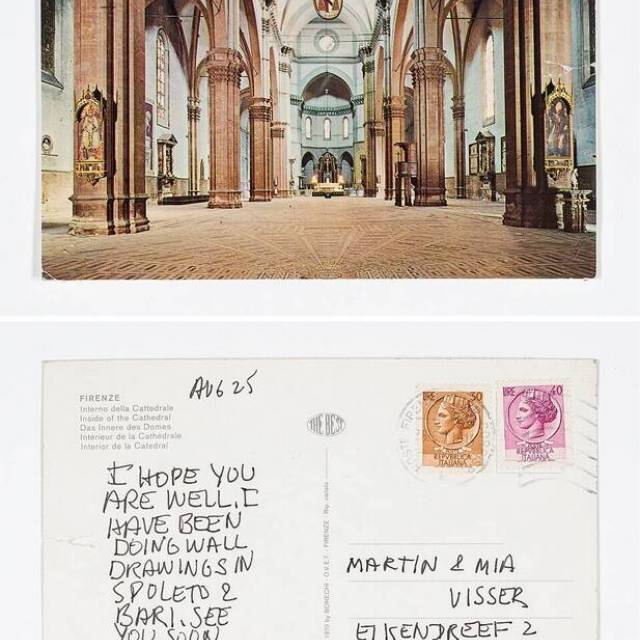 FIRENZE
Interno della Cattedrale
Inside of the Cathedral
Das Innere des Domes
Intérieur de la Cathédrale
Interior de la Catedral
AUG 25
THE BEST
LIRE 50
POSTE
REPVBBLICA
ITALIANA
LIRE 40
POSTE
REPVBBLICA
ITALIANA
I HOPE YOU
ARE WELL. I
HAVE BEEN
DOING WALL
DRAWINGS IN
SPOLETO &
BARI. SEE
YOU SOON
by BONECHI - O.V.E.T. - FIRENZE - Rip. vietata
MARTIN & MIA
VISSER
EIKENDREEF 2